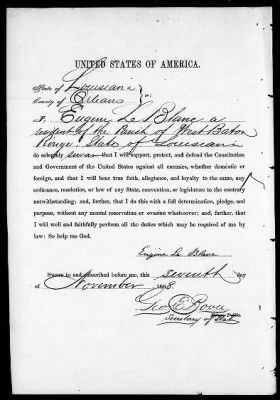 UNITED STATES OF AMERICA.
State of Louisiana
County of Orleans } ss:
I, Eugene Le Blanc a
resident of the Parish of West Baton
Rouge, State of Louisiana
do solemnly swear that I will support, protect, and defend the Constitution
and Government of the United States against all enemies, whether domestic or
foreign, and that I will bear true faith, allegiance, and loyalty to the same, any
ordinance, resolution, or law of any State, convention, or legislature to the contrary
notwithstanding; and, further, that I do this with a full determination, pledge, and
purpose, without any mental reservation or evasion whatsoever; and, further, that
I will well and faithfully perform all the duties which may be required of me by
law: So help me God.
Eugene Le Blanc
Sworn to and subscribed before me, this seventh day
of November 1868.
Geo E Bovee
Secretary of State